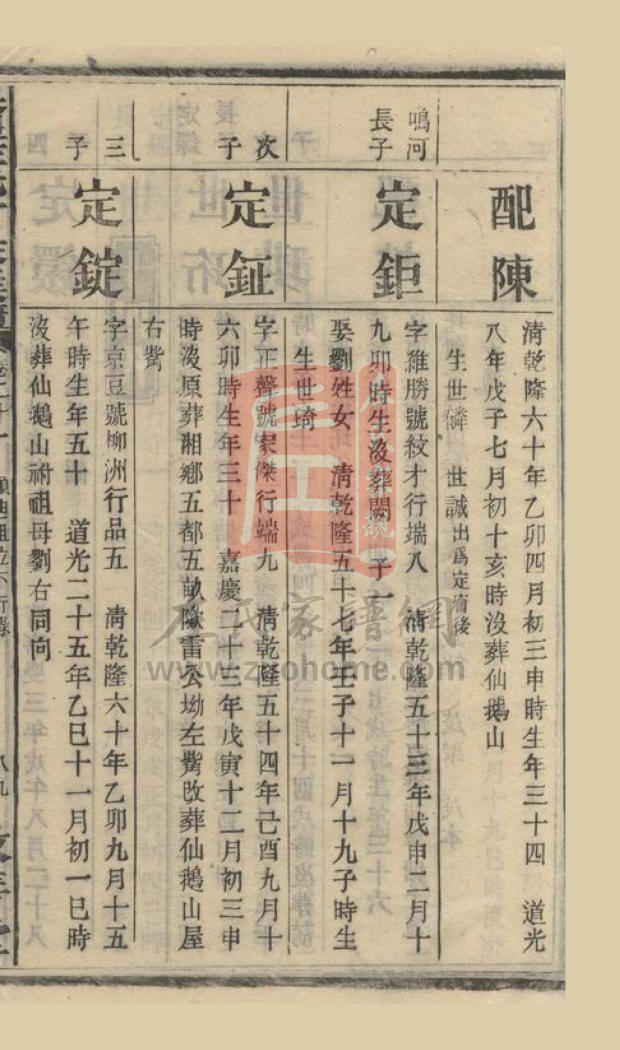 配陳
清乾隆六十年乙卯四月初三申時生年三十四 道光
八年戊子七月初十亥時沒葬仙鵝山
生世憐 世誠出爲定瘉後
鳴河
長子
定鉅
字維勝號紋才行端八 清乾隆五十三年戊申二月十
九卯時生沒葬闕 子一
娶劉姓女 清乾隆五十七年壬子十一月十九子時生
生世琦
次
子
定鉦
字正聲號家傑行端九 清乾隆五十四年己酉九月十
六卯時生年三十 嘉慶二十三年戊寅十二月初三申
時沒原葬湘鄉五都五畝歐雷公坳左觜改葬仙鵝山屋
右觜
三
子
定錠
字京豆號柳洲行品五 清乾隆六十年乙卯九月十五
午時生年五十 道光二十五年乙巳十一月初一巳時
沒葬仙鵝山祔祖母劉右同向
卷二十一
八九
家譜網
www.zpohome.com